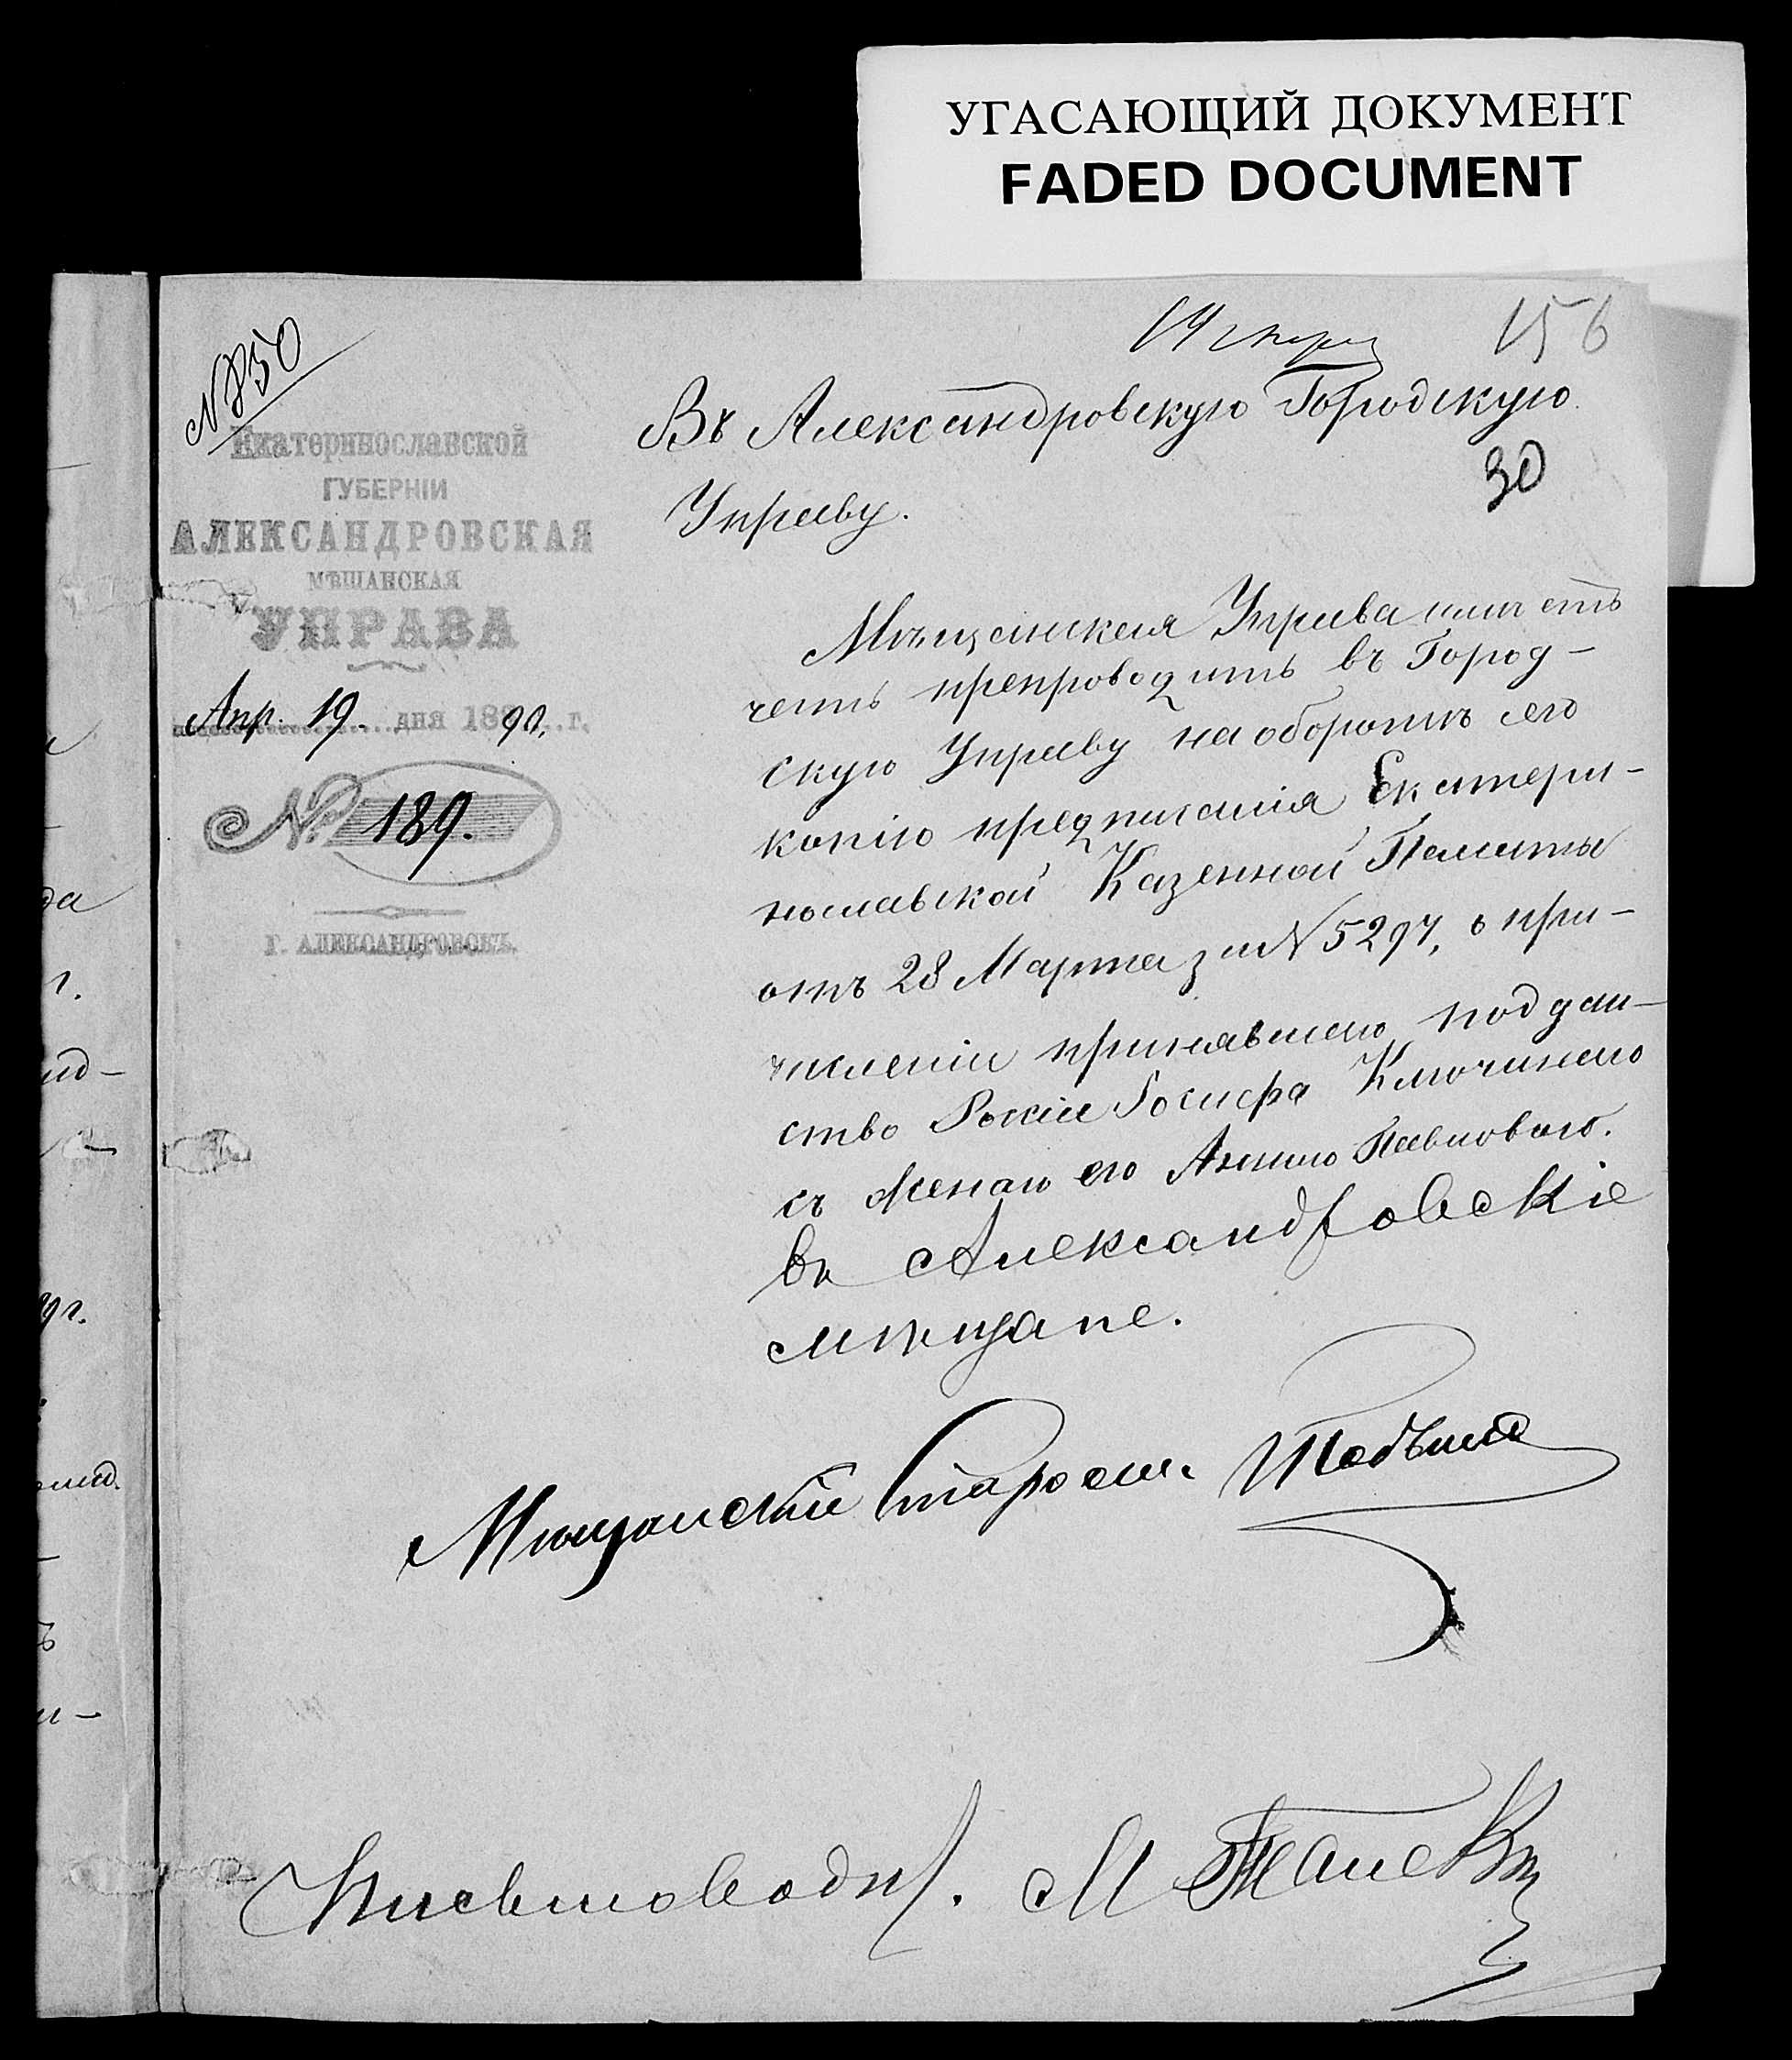 УГАСАЮЩИЙ ДОКУМЕНТ
FADED DOCUMENT
156
№ 850
Екатеринославской
ГУБЕРНІИ
АЛЕКСАНДРОВСКАЯ
МѢЩАНСКАЯ
УПРАВА
Апр. 19. дня 1890. г.
№ 189.
Г. АЛЕКСАНДРОВСКЪ.
Въ Александровскую Городскую
Управу.
30
Мѣщанская Управа имѣетъ
честь препроводить въ Город-
скую Управу на оборотѣ сего
копію предписанія Екатери-
нославской Казенной Палаты
отъ 28 Марта за № 5297, о при-
численіи принявшаго поддан-
ство Россіи Іосифа Ключинаго
съ женою его Анною Павловою.
въ Александровскіе
мѣщане.
Мѣщанскій Старост.
Письмоводит. М
да
г.
ид-
9г.
ъ
и-